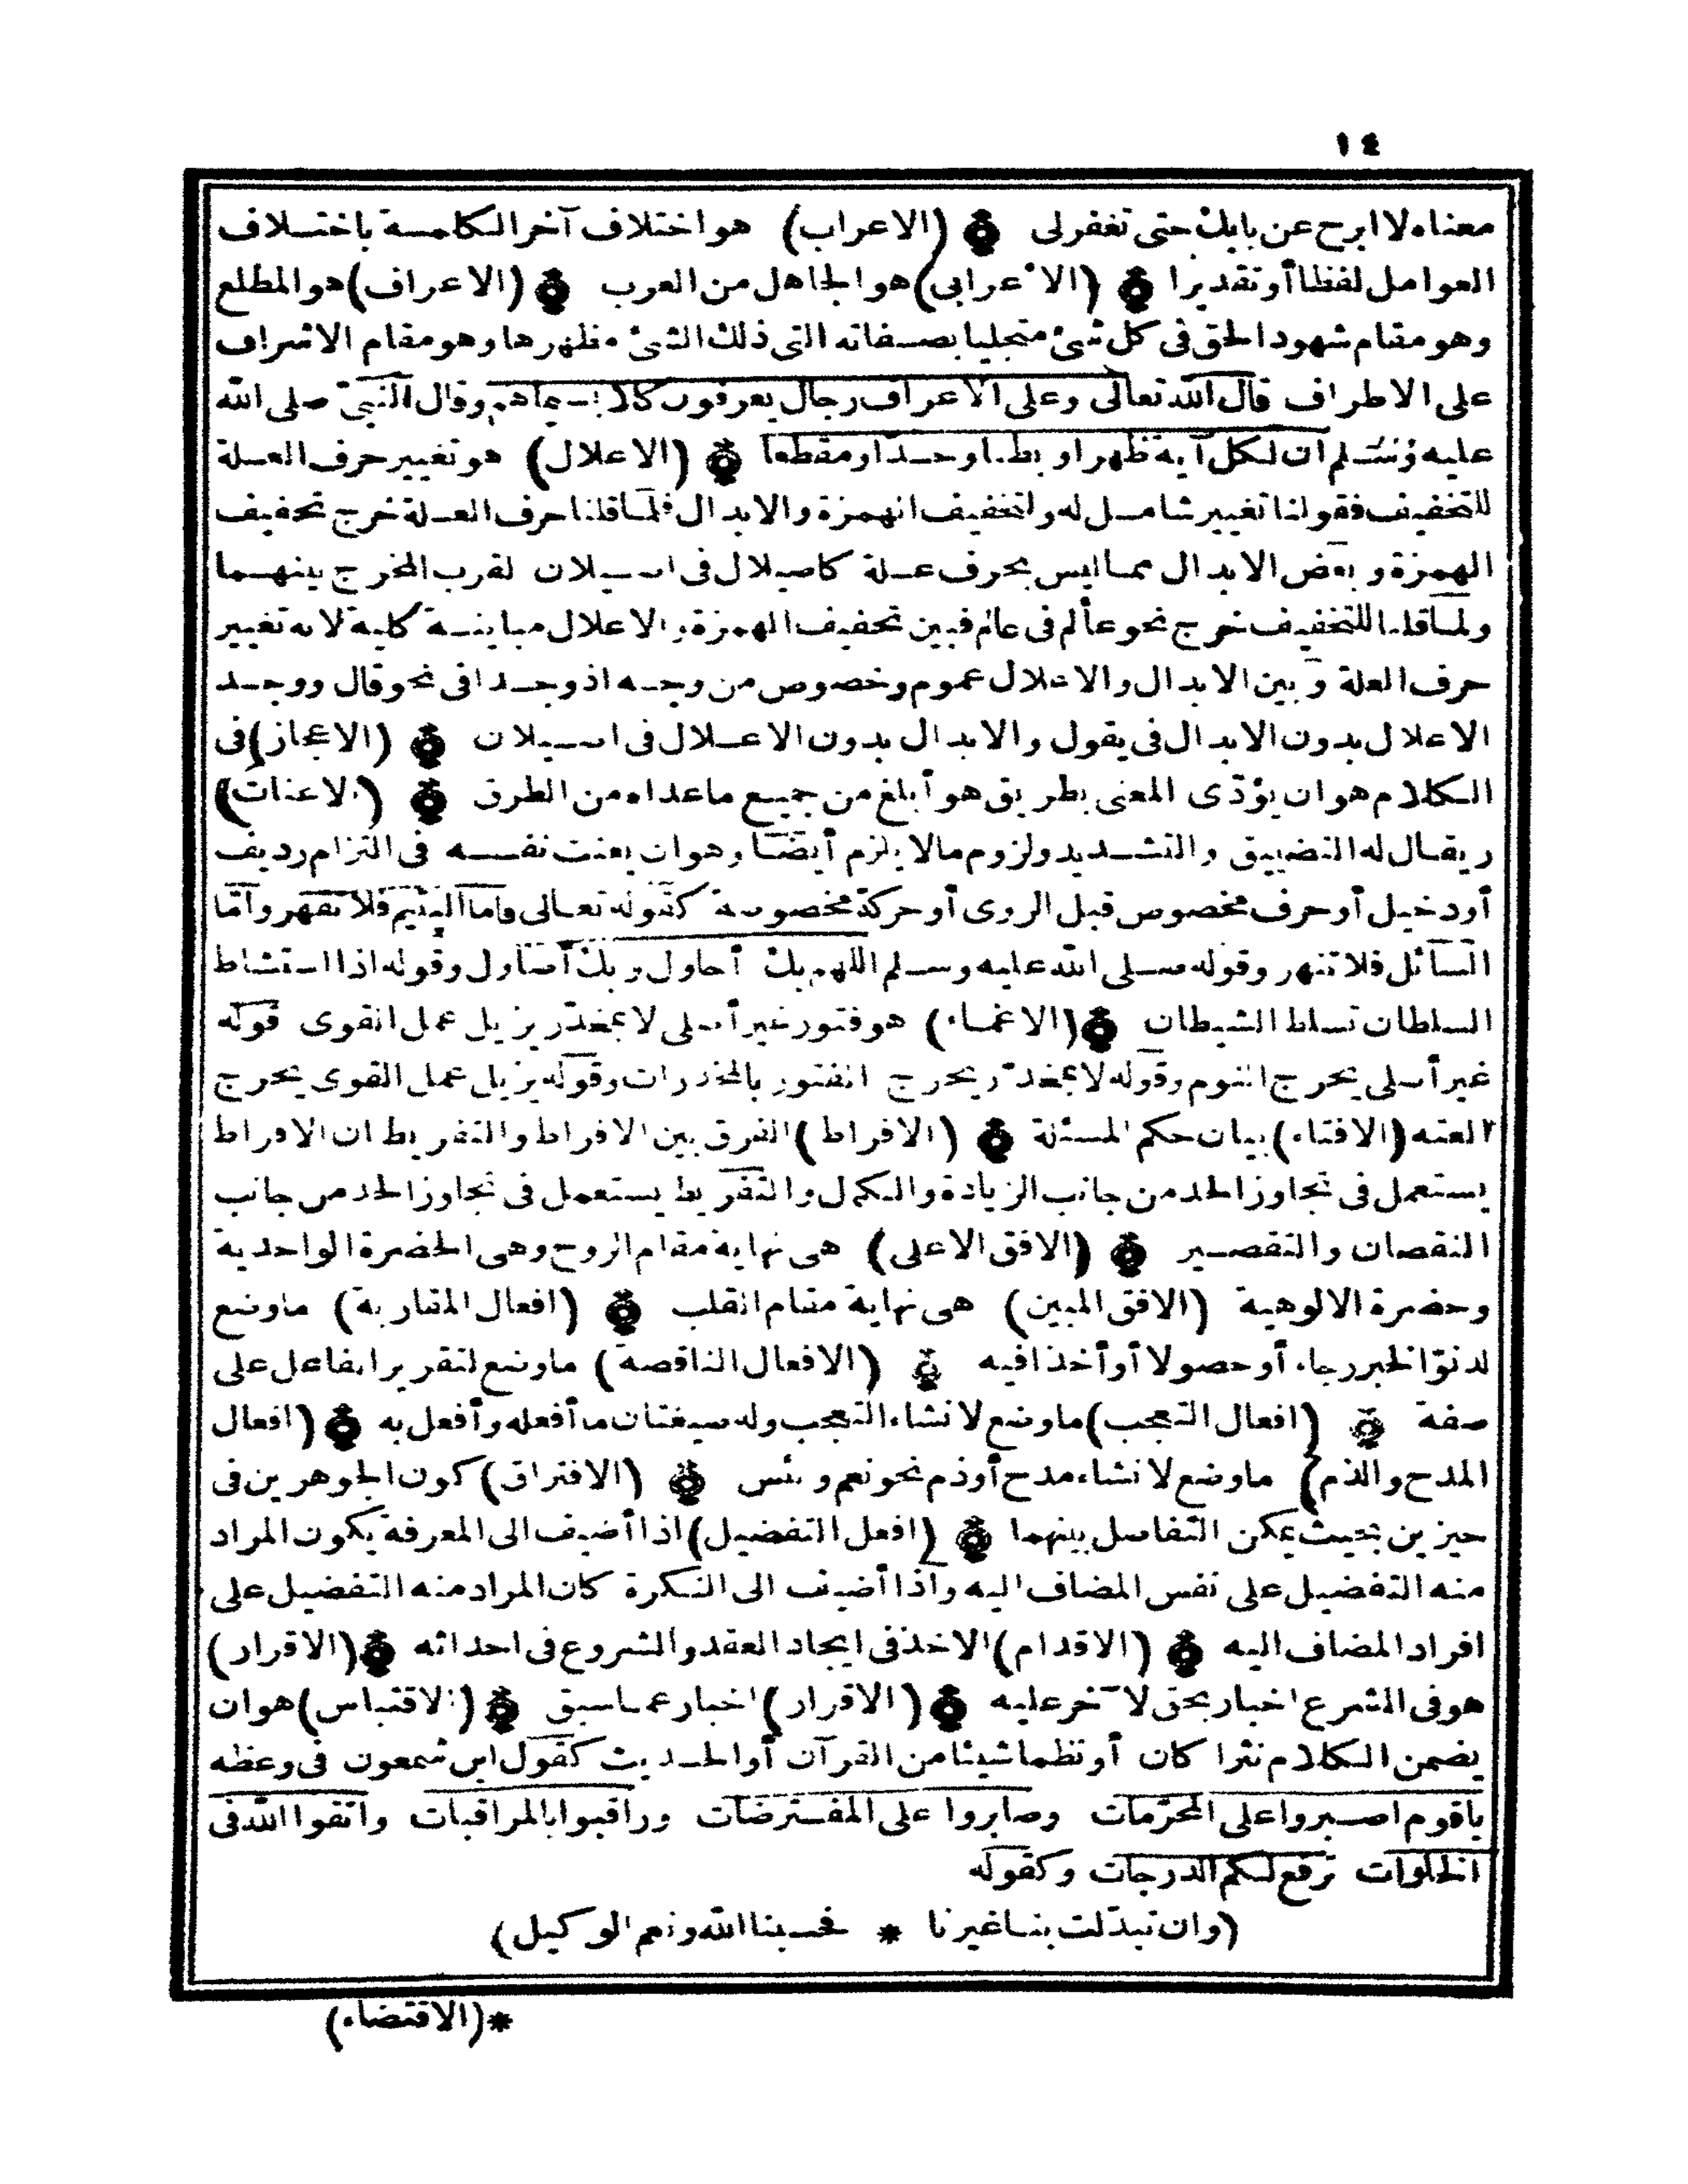 ١٤
معناه لا ابرح عن بابك حتى تغفرلى ۞ (الاعراب) هو اختلاف آخر الكامـة باختـلاف
العوامل لفظا أوتقديرا ۞ (الاعرابى) هو الجاهل من العرب ۞ (الاعراف) هو المطلع
وهو مقام شهود الحق فى كل شئ متجليا بصـفاته التى ذلك الشئ مظهرها وهو مقام الاشراف
على الاطراف قال الله تعالى وعلى الاعراف رجال يعرفون كلا بسيماهم وقال النبىّ صلى الله
عليه وسـلم ان لكل آية ظهرا وبطنا وحـدّا ومقطعا ۞ (الاعلال) هو تغيير حرف العـلة
للتخفيف فقولنا تغيير شامـل له ولتخفيف الهمزة والابدال فلمـا قلنا حرف العـلة خرج تخفيف
الهمزة وبعض الابدال ممـا ليس بحرف عـلة كاصيلال فى اصـيلان لقرب المخرج بينهـما
ولمـا قلنا للتخفيف خرج نحو عألم فى عالم فبين تخفيف الهمزة والاعلال مباينـة كلية لانه تغيير
حرف العلة وبين الابدال والاعلال عموم وخصوص من وجـه اذ وجـدا فى نحو قال ووجـد
الاعلال بدون الابدال فى يقول والابدال بدون الاعـلال فى اصـيلان ۞ (الاعجاز) فى
الكلام هو ان يؤدّى المعنى بطريق هو أبلغ من جميع ماعداه من الطرق ۞ (الاعنات)
ويقـال له التضييق والتشـديد ولزوم مالا يلزم أيضـا وهو ان يعنت نفسـه فى التزام رديف
أودخيل أوحرف مخصوص قبل الروى أوحركة مخصوصة كقوله تعـالى فأما اليتيم فلا تقهر وأمّا
السائل فلا تنهر وقوله صـلى الله عليه وسـلم اللهم بك أحاول وبك أصاول وقوله اذا استشاط
السلطان تسلط الشيطان ۞ (الاغماء) هو فتور غير أصلى لا بمخدّر يزيل عمل القوى قوله
غير أصلى يخرج النوم وقوله لا بمخدّر يخرج الفتور بالمخدرات وقوله يزيل عمل القوى يخرج
العته (الافتاء) بيان حكم المسئلة ۞ (الافراط) الفرق بين الافراط والتفريط ان الافراط
يستعمل فى تجاوز الحد من جانب الزيادة والكمال والتفريط يستعمل فى تجاوز الحد من جانب
النقصان والتقصـير ۞ (الافق الاعلى) هى نهاية مقام الروح وهى الحضرة الواحدية
وحضرة الالوهية (الافق المبين) هى نهاية مقام القلب ۞ (افعال المقاربة) ماوضع
لدنوّ الخبر رجاء أوحصولا أوأخذا فيه ۞ (الافعال الناقصة) ماوضع لتقرير الفاعل على
صفة ۞ (افعال التعجب) ماوضع لانشاء التعجب وله صيغتان ما أفعله وأفعل به ۞ (افعال
المدح والذم) ماوضع لانشاء مدح أوذم نحو نعم وبئس ۞ (الافتراق) كون الجوهرين فى
حيزين بحيث يمكن التفاصل بينهما ۞ (افعل التفضيل) اذا أضيف الى المعرفة يكون المراد
منه التفضيل على نفس المضاف اليه واذا أضيف الى النكرة كان المراد منه التفضيل على
افراد المضاف اليه ۞ (الاقدام) الاخذ فى ايجاد العقد والشروع فى احداثه ۞ (الاقرار)
هو فى الشرع اخبار بحق لآخر عليه ۞ (الاقرار) اخبار عمـا سبق ۞ (الاقتباس) هو ان
يضمن الكلام نثرا كان أونظما شيئا من القرآن أوالحـديث كقول ابن شمعون فى وعظه
ياقوم اصـبروا على المحرّمات وصابروا على المفـترضات وراقبوا بالمراقبات واتقوا الله فى
الخلوات ترفع لكم الدرجات وكقوله
(وان تبدّلت بنـا غيرنا * فحسبنا الله ونعم الوكيل)
*(الاقتضاء)